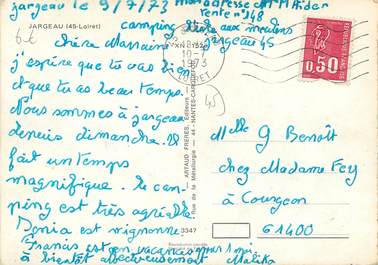 jargeau le 9/7/73 mon adresse chez M Aider
tente n° 248
camping l'isle aux moulins
jargeau 45
JARGEAU (45-Loiret)
chère Marraine
j'espère que tu vas bien
et que tu as beau temps.
Nous sommes à jargeau
depuis dimanche. Il
fait un temps
magnifique. le cam-
ping est très agréable
Sonia est mignonne.
Francis est en vacances
à bientôt affectueusement Malika
18H
10-7
1973
LOIRET
0,50
45
Melle G Benoît
chez Madame Fey
à Courgeon
61400
ARTAUD FRERES, Editeurs
Rue de la Métallurgie - 44-NANTES-CARQUEFOU
3347